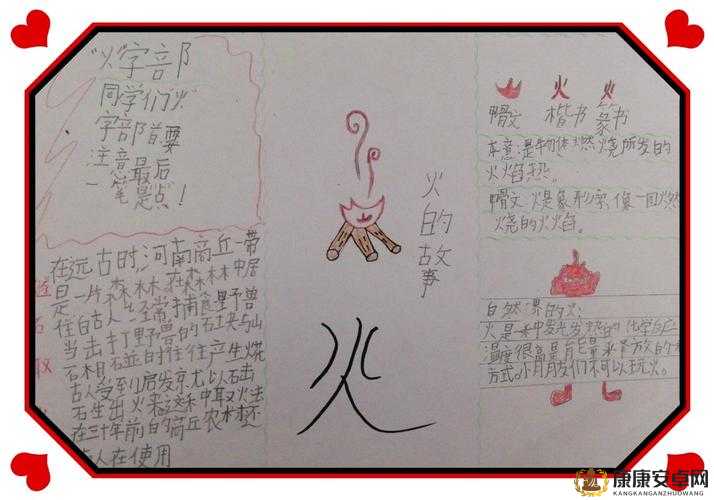 "火"字部
同学们"火"
字部首要
注意最后
一笔是点！
在远古时,河南商丘一带
是一片森林,在森林中居
住的古人,经常捕食野兽
当击打野兽的石块与山
石相碰时往往产生火花
古人受到启发就以石击
石生出火来这种取火法
在三十年前的商丘农村还
有人在使用
取
火的故事
火
火 火
甲骨文 楷书 篆书
本意是物体燃烧所发的
火焰热。
甲骨文 火是象形字,像一团燃
烧的火焰。
自然界的火
火是一种发光发热的化学反应
温度很高是能量释放的
方式。小朋友们不可以玩火。
康康安卓网
KANGKANGANZHUOWANG